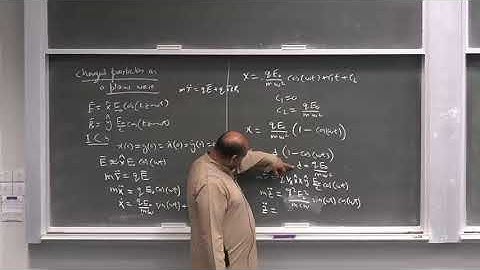 Charged particles in
a plane wave
E⃗ = x̂ E₀ cos(kz-ωt)
B⃗ = ŷ E₀/c cos(kz-ωt)
I.C.s
x(0) = y(0) = ẋ(0) = ẏ(0)
E⃗ ≈ x̂ E₀ cos(ωt)
m v̇ = q E⃗
m ẍ = q E₀ cos(ωt)
ẋ = qE₀/mω sin(ωt) +
m v̇ = q E⃗ + q v⃗ × B⃗
x = - qE₀/mω² cos(ωt) + c₁t + c₂
c₁ = 0
c₂ = qE₀/mω²
x = qE₀/mω² (1 - cos(ωt))
d (1 - cos(ωt))
d = qE₀/mω²
E₀/c cos(ωt)
m z̈ = q²E₀²/mcω sin(ωt) cos(ωt)
z̈ =